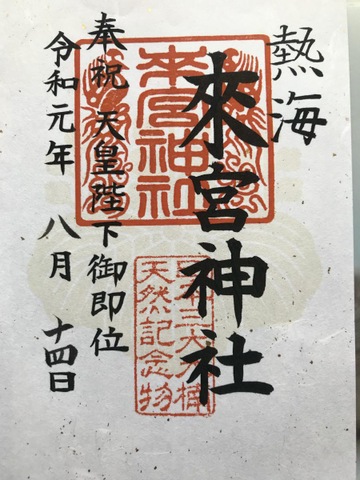 熱海
來宮神社
奉祝 天皇陛下御即位
令和元年 八月 十四日
來宮神社
天然記念物